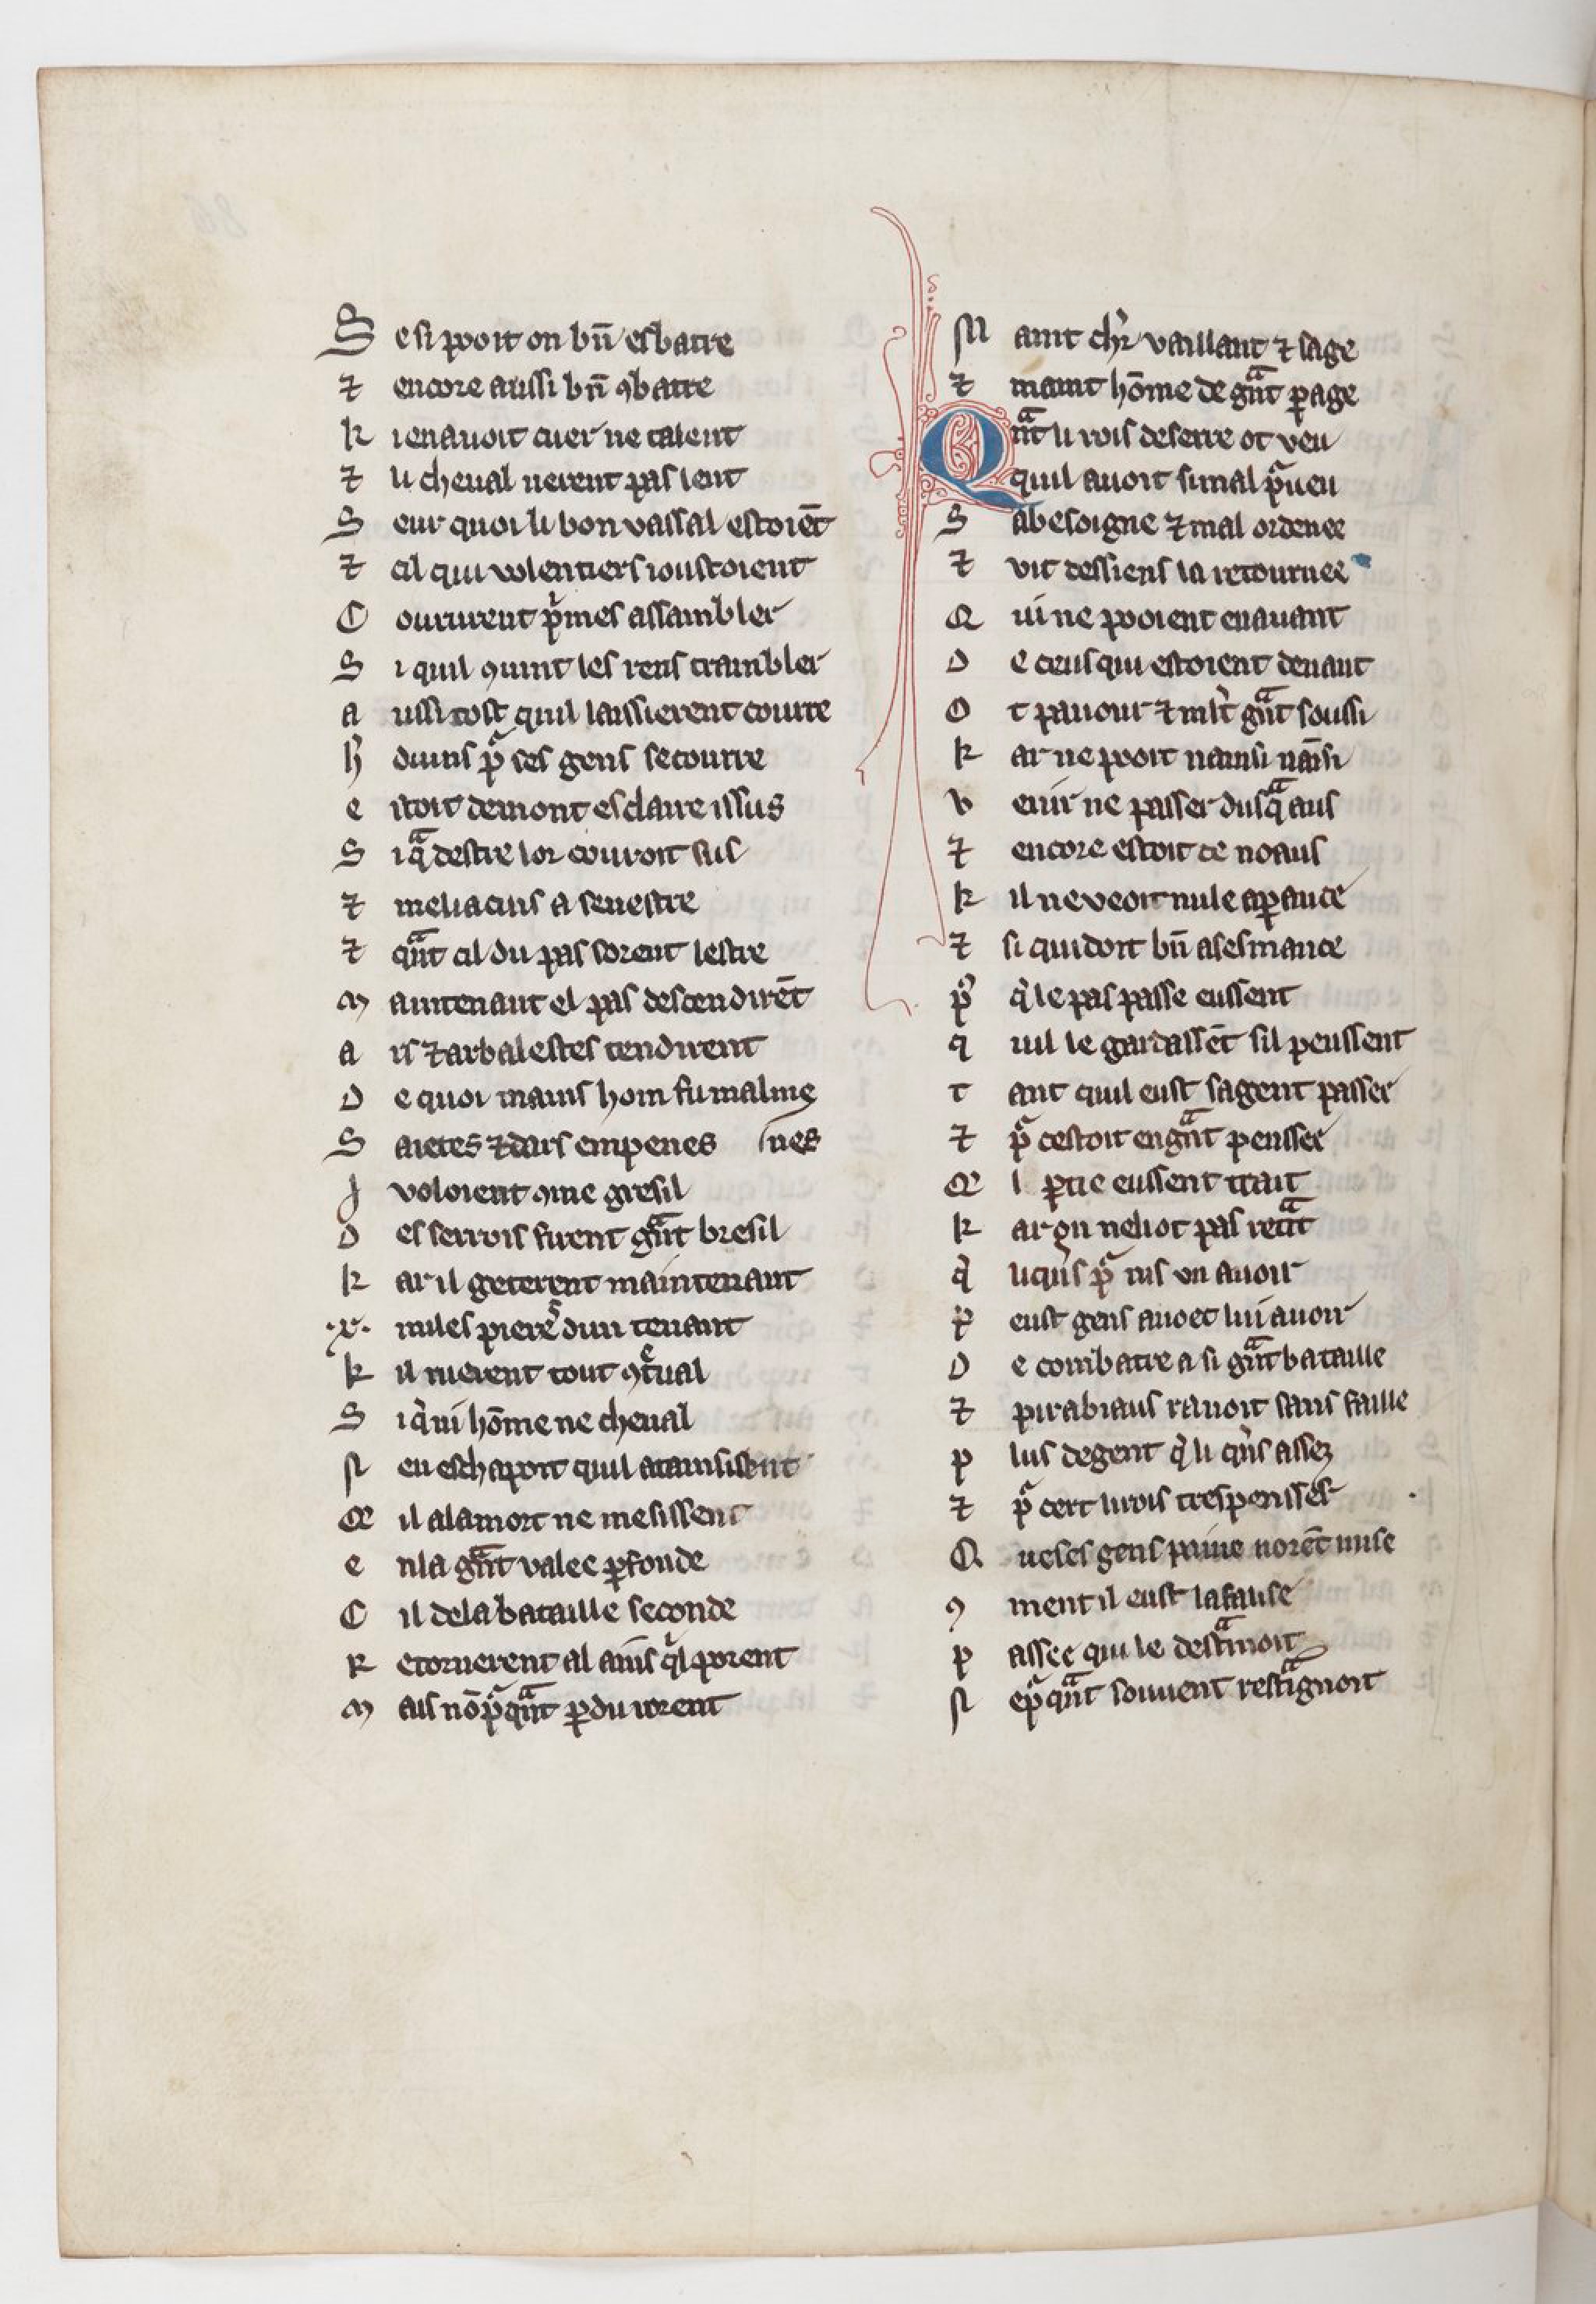 S e si pooit on bn̄ esbatre
⁊ encore aussi bn̄ ꝯbatre
k i en auoit cuer ne talent
⁊ li cheual nerent pas lent
S eur quoi li bon vassal estoiēt
⁊ cil qui volentiers ioustoient
C oururent pͥmes assambler
S i quil ꝯuint les rens trambler
a ussi tost quil laissierent courre
h duins pᷓ ses gens secourre
e stoit de mont esclaire issus
S i qᷓ destre lor couroit sus
⁊ meliacins a senestre
⁊ qᷓnt cil du pas sorent lestre
M aintenant el pas descendirēt
a rs ⁊ arbalestes tendirent
D e quoi mains hom fu malme
S aietes ⁊ dars empenes (nes
J voloient ꝯme gresil
D es serrois firent gᷓnt bresil
k ar il geterent maintenant
.x. miles pieres dun tenant
k il ruerent tout ꝯtͤual
S i q̇ ni hōme ne cheual
N en eschapoit quil atainsisent
Q il a la mort ne mesissent
e n la gᷓnt valee ꝑfonde
C il de la bataille seconde
R etornerent al ains qͥl porent
M ais nō pᷓqᷓnt ꝑdu i orent
M aint chr̄ vaillant ⁊ sage
⁊ maint hōme de gᷓnt ꝑage
Q nᷓt li rois deserre ot veu
quil auoit si mal pᷓueu
S a besoigne ⁊ mal ordenee
⁊ vit des siens la retournee
Q ui ne pooient en auant
D e ceus qui estoient deuant
O t paour ⁊ mlt̄ gᷓnt soussi
k ar ne pooit nainsi nāsi
V enir ne passer dusqᷓ aus
⁊ encore estoit ce noaus
k il ne veoit nule aꝑance
⁊ si quidoit bn̄ a sesmance
pᷓ q̇ le pas passe eussent
q uil le gardassēt sil peussent
t ant quil eust sa gent passee
⁊ pᷓ cestoit en gᷓnt pensee
Q l ꝑtie eussent trait
k ar on neliot pas retᷓit
q̇ li qͥns pᷓ nis vn auoir
P eust gens auoec lui auoir
D e combatre a si gᷓnt bataille
⁊ pirabiaus rauoit sans faille
P lus de gent q̇ li qͥns assez
⁊ pᷓ cert li rois trespensser
Q ue ses gens paine norēt mise
ꝯ ment il eust la fause
P assee qui le destᷓinoit
N e pᷓqᷓnt souuent restᷓignoit